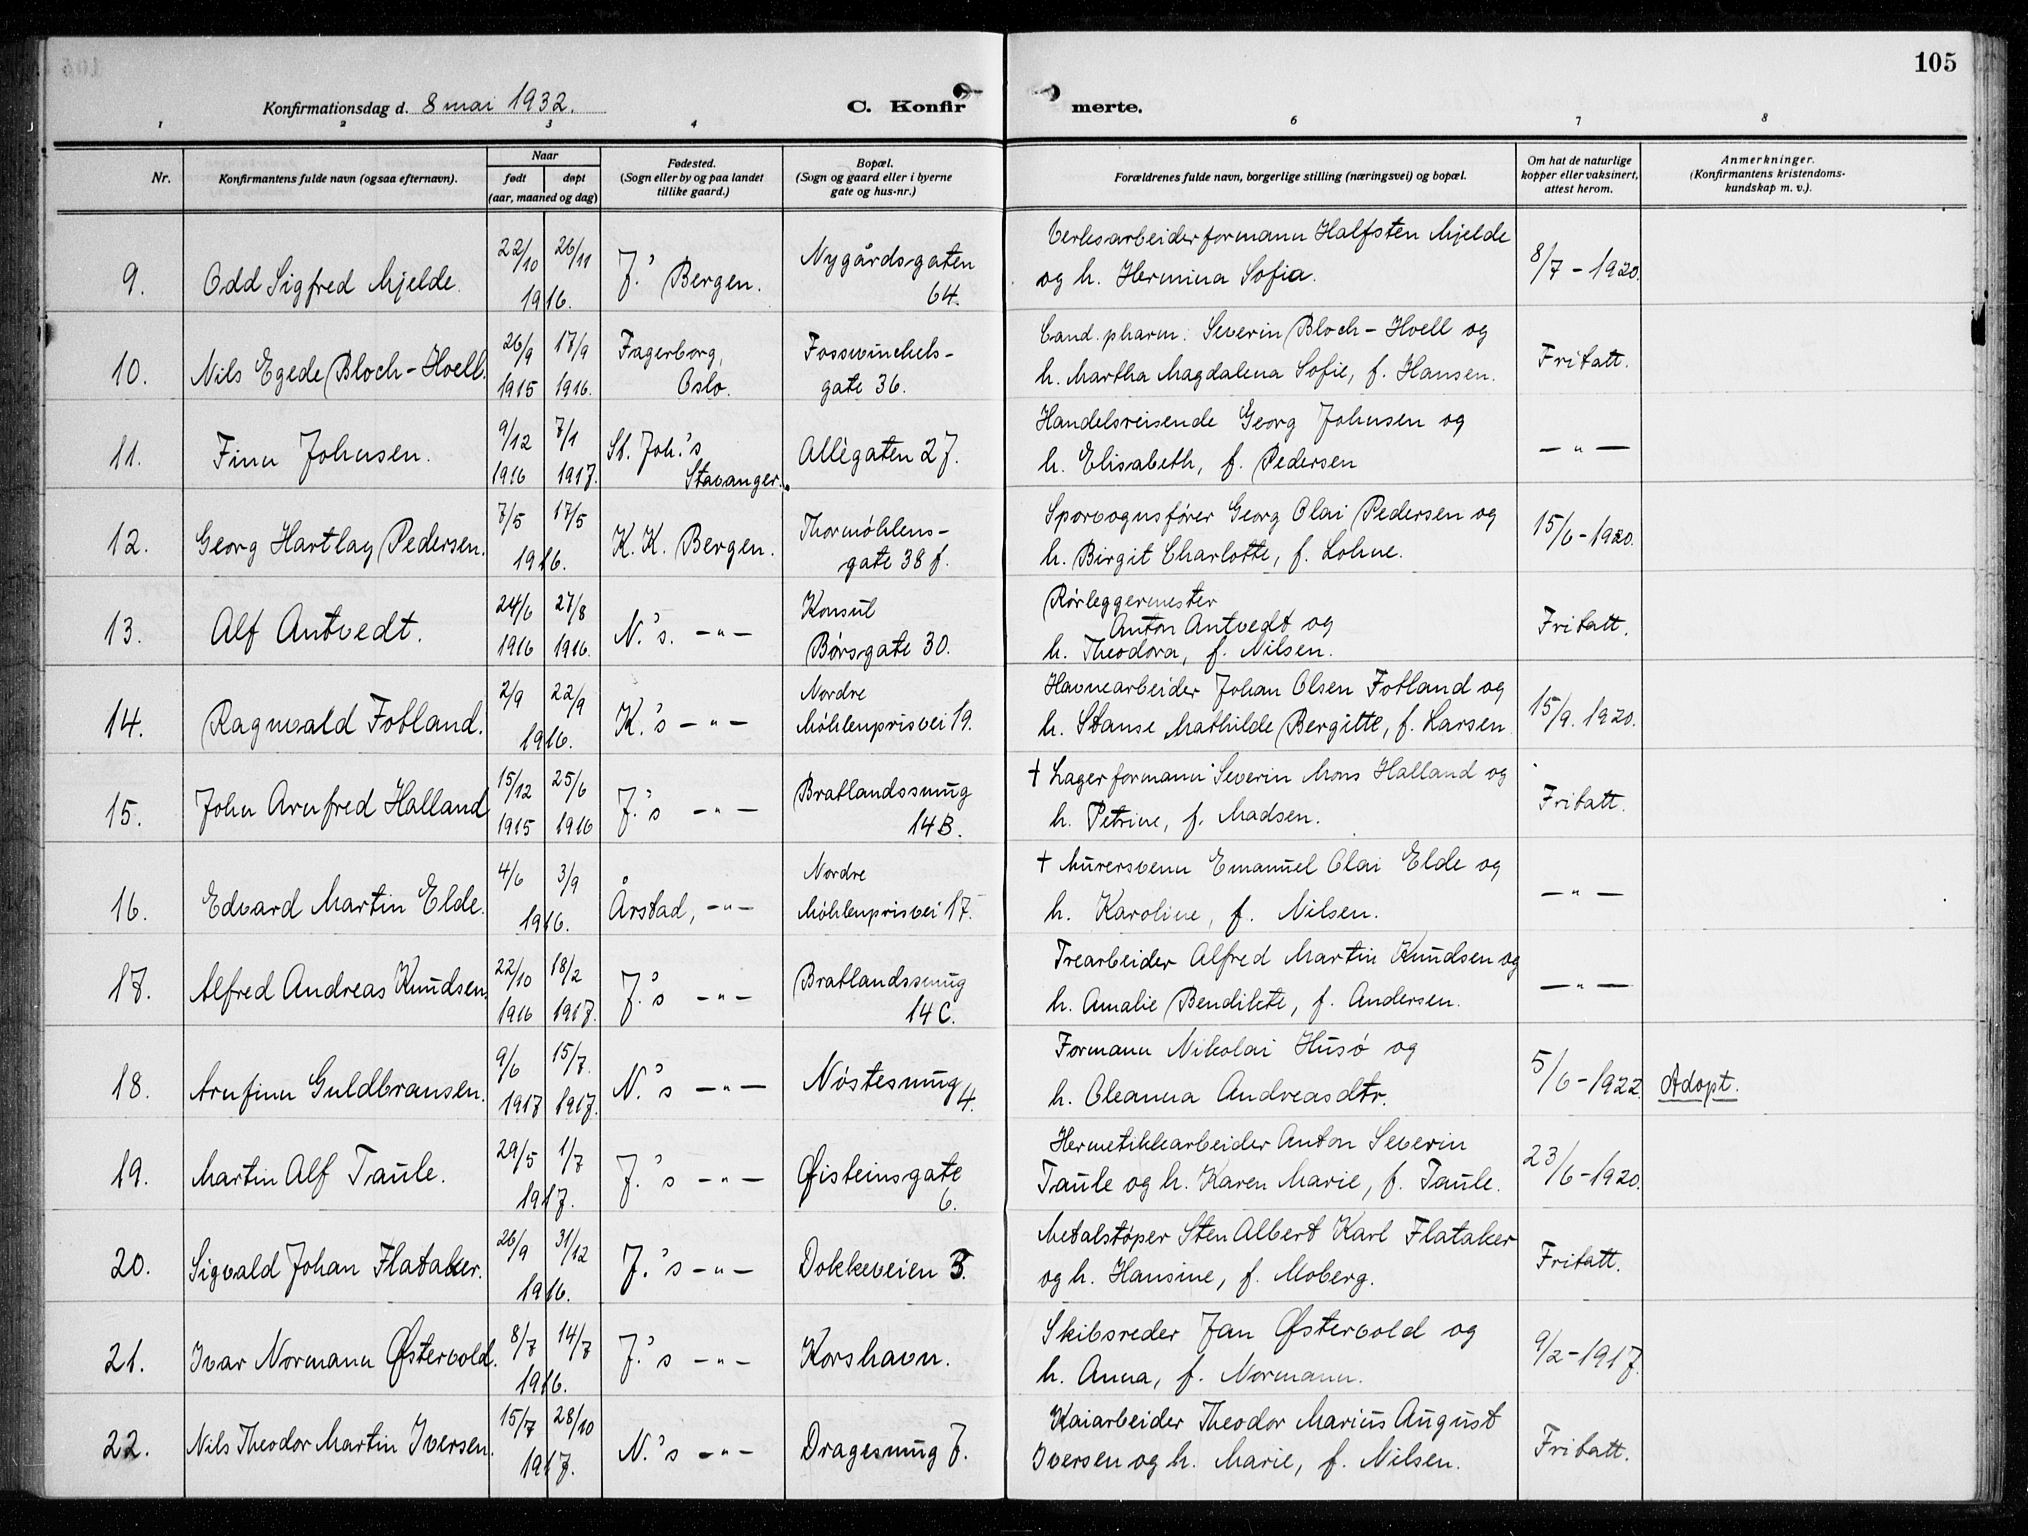 105
Konfirmationsdag d. 8 mai 1932.
C. Konfir merte.
1 2 3 4 6 7 8
Nr.
Konfirmantens fulde navn (ogsaa efternavn).
Naar
født døpt
(aar, maaned og dag)
Fødested.
(Sogn eller by og paa landet
tillike gaard.)
Bopæl.
(Sogn og gaard eller i byerne
gate og hus-nr.)
Forældrenes fulde navn, borgerlige stilling (næringsvei) og bopæl.
Om hat de naturlige
kopper eller vaksinert,
attest herom.
Anmerkninger.
(Konfirmantens kristendoms-
kundskap m. v.).
9. Odd Sigfred Mjelde. 22/10 26/11 1916. J.' Bergen. Nygårdsgaten
64.
Verksarbeiderformann Halfsten Mjelde
og h. Hermina Sofia.
8/7 - 1920.
10. Nils Egede Bloch-Hoell. 26/9 1915 17/9 1916. Fagerborg,
Oslo.
Fosswinckels-
gate 36.
Cand. pharm. Severin Bloch-Hoell og
h. Martha Magdalena Sofie, f. Hansen.
Fritatt.
11. Finn Johnsen. 9/12 1916 7/1 1917. St. Joh.'s
Stavanger.
Allégaten 27.
Handelsreisende Georg Johnsen og
h. Elisabeth, f. Pedersen
— " —
12. Georg Hartlay Pedersen. 7/5 17/5 1916. K. K. Bergen. Thormøhlens-
gate 38 f.
Sporvognsfører Georg Olai Pedersen og
h. Birgit Charlotte, f. Lohne.
15/6 - 1920.
13. Alf Antvedt. 24/6 1916 27/8 1916. N.'s. — " — Konsul
Børsgate 30.
Rørleggermester
Anton Antvedt og
h. Theodora, f. Nilsen.
Fritatt.
14. Ragnvald Fotland. 2/9 22/9 1916. K.'s — " — Nordre
Møhlenprisvei 19.
Havnearbeider Johan Olsen Fotland og
h. Stanse Mathilde Bergitte, f. Larsen
15/9. 1920.
15. John Arnfred Halland 15/12 1915 25/6 1916 J.'s — " — Bratlandssmug
14 B.
† Lagerformann Severin Mons Halland og
h. Petrine, f. Madsen.
Fritatt.
16. Edvard Martin Elde. 4/6 3/9 1916. Årstad, — " — Nordre
Møhlenprisvei 17.
† Murersvenn Emanuel Olai Elde og
h. Karoline, f. Nilsen.
— " —
17. Alfred Andreas Knudsen. 22/10 1916 18/2 1917. J.'s — " — Bratlandssmug
14 C.
Trearbeider Alfred Martin Knudsen og
h. Amalie Bendikte, f. Andersen.
— " —
18. Arnfinn Guldbransen. 9/6 1917 15/7. 1917. N.'s — " — Nøstesmug 4.
Formann Nikolai Husø og
h. Oleanna Andreasdtr.
5/6 - 1922. Adopt.
19. Martin Alf Taule. 29/5 1/7 1917. J.'s — " — Øisteinsgate
6.
Hermetikkarbeider Anton Severin
Taule og h. Karen Marie, f. Taule.
23/6 - 1920.
20. Sigvald Johan Flataker. 26/9 31/12 1916. J.'s — " — Dokkeveien 3.
Metalstøper Sten Albert Karl Flataker
og h. Hansine, f. Moberg.
Fritatt.
21. Ivar Normann Østervold. 8/7 14/7 1916. J.'s — " — Korshavn.
Skibsreder Jan Østervold og
h. Anna, f. Normann.
9/2 - 1917.
22. Nils Theodor Martin Iversen. 15/7 28/10 1917. N.'s — " — Dragesmug 7.
Kaiarbeider Theodor Marius August
Iversen og h. Marie, f. Nilsen.
Fritatt.